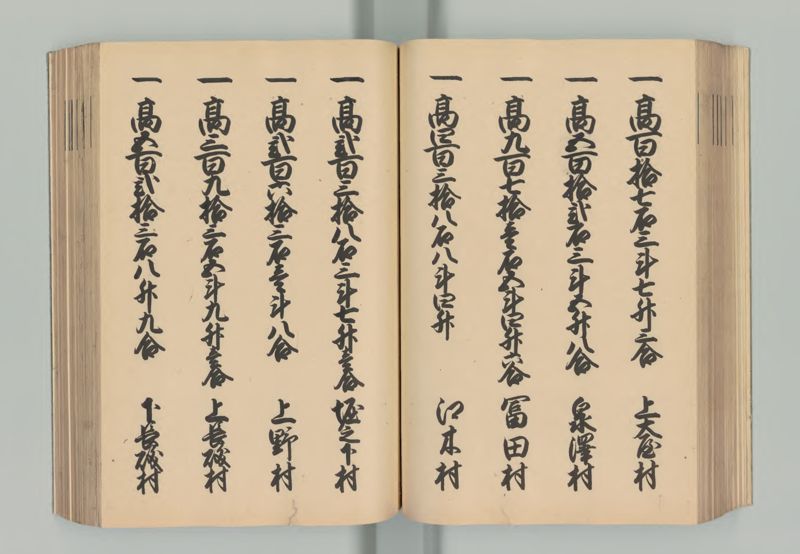 一高百拾七石三斗七升三合 上大屋村
一高五百拾弐石三斗五升八合 泉澤村
一高九百七拾壱石五斗四升六合 冨田村
一高四百三拾八石八斗四升 江木村
一高弐百三拾八石三斗七升壱合 堀之下村
一高弐百六拾三石壱斗八合 上野村
一高三百九拾三石五斗九升壱合 上長磯村
一高五百弐拾三石八升九合 下長磯村